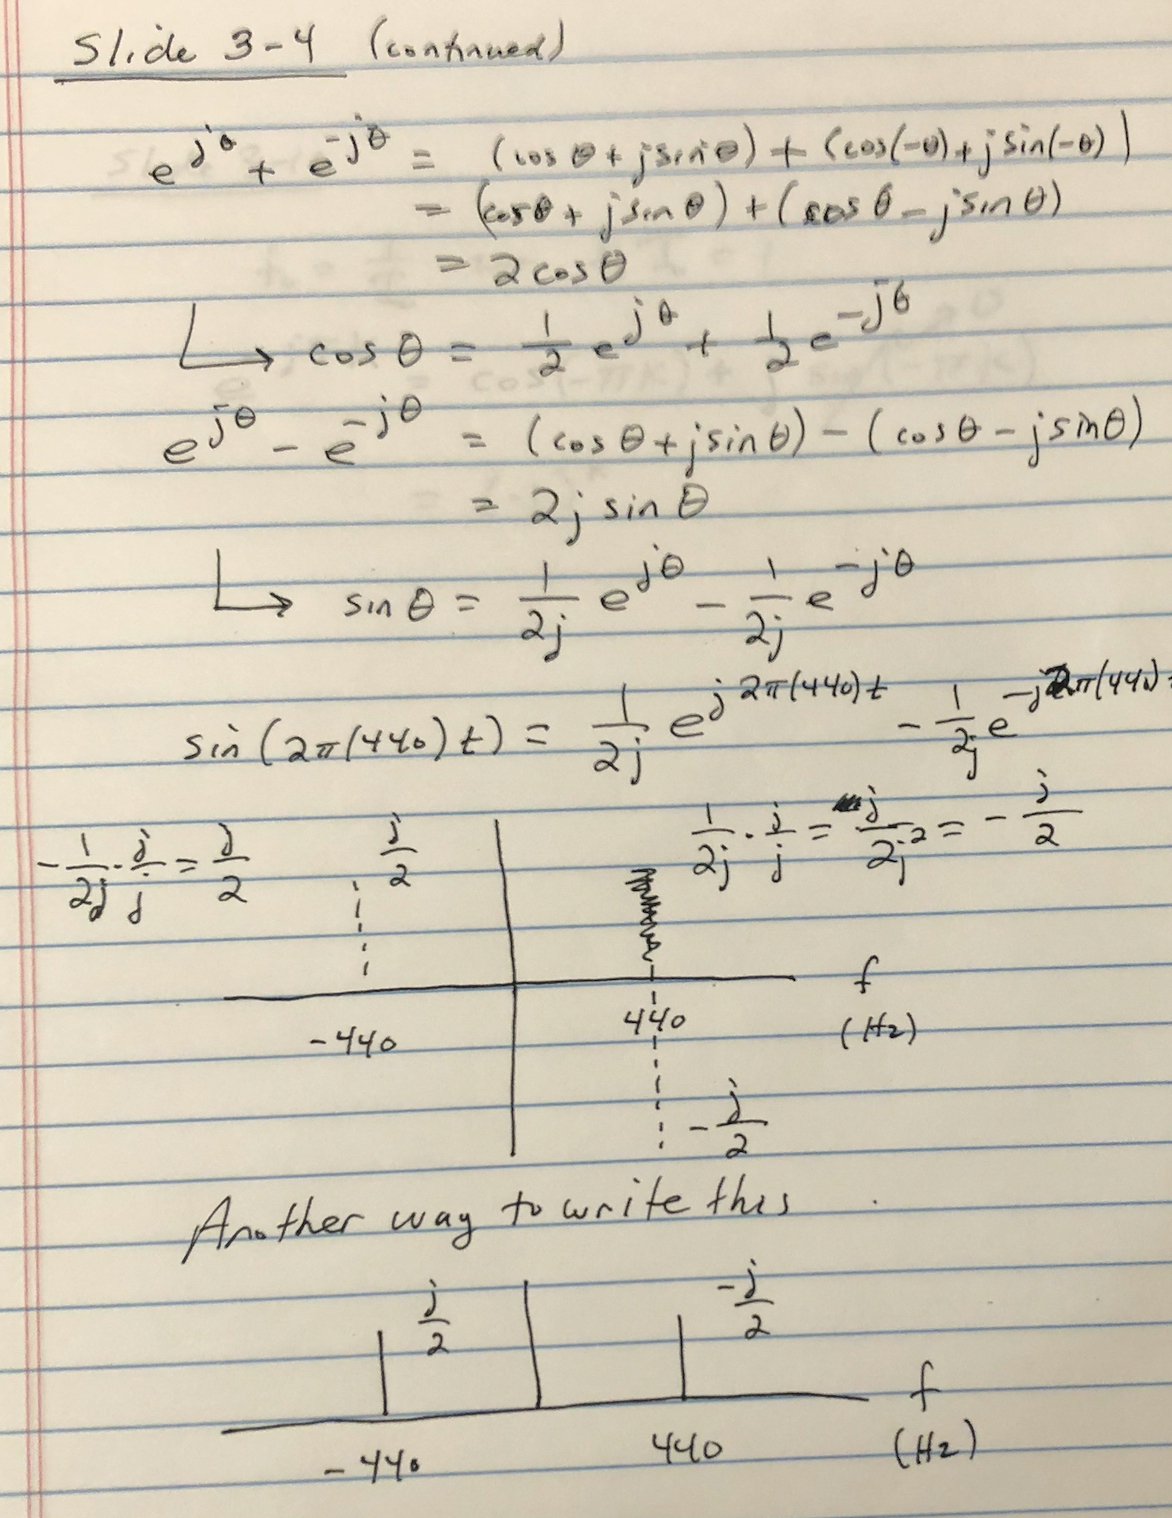 Slide 3-4 (continued)
e^{jθ} + e^{-jθ} = (cos θ + j sin θ) + (cos(-θ) + j sin(-θ))
= (cos θ + j sin θ) + (cos θ - j sin θ)
= 2 cos θ
↳ cos θ = 1/2 e^{jθ} + 1/2 e^{-jθ}
e^{jθ} - e^{-jθ} = (cos θ + j sin θ) - (cos θ - j sin θ)
= 2j sin θ
↳ sin θ = 1/2j e^{jθ} - 1/2j e^{-jθ}
sin(2π(440)t) = 1/2j e^{j2π(440)t} - 1/2j e^{-j2π(440)t}
-1/2j · j/j = j/2
j/2
1/2j · j/j = j/2j^2 = -j/2
f
-440
440
(Hz)
-j/2
Another way to write this
j/2
-j/2
f
-440
440
(Hz)